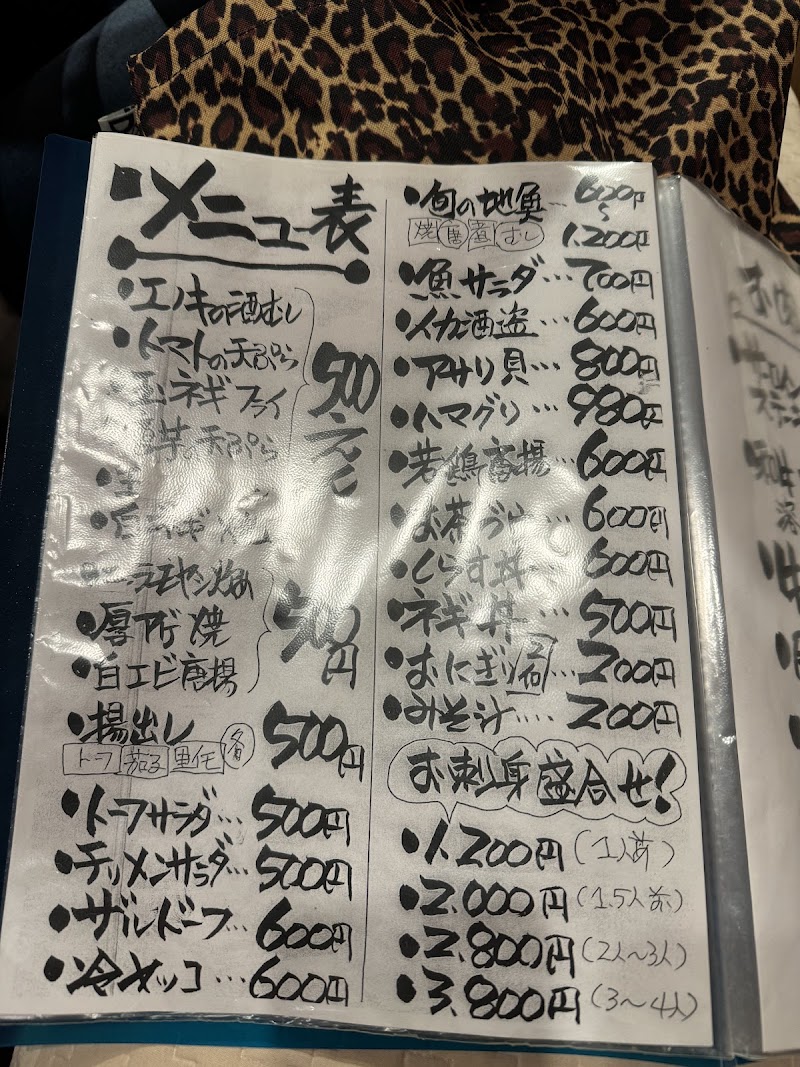 メニュー表
・エノキの酒むし
・トマトの天ぷら
・玉ネギフライ
芋の天ぷら
500えん
モヤシ炒め
・厚アゲ焼
・白エビ唐揚
500円
・揚出し 500円
トーフ 茄子 里芋 各
・トーフサラダ… 500円
・チリメンサラダ… 500円
・ザルドーフ… 600円
・冷メッコ… 600円
・旬の地魚… 600円
〜
焼 唐 煮 むし 1.200円
・魚サラダ… 700円
・イカ酒盗… 600円
・アサリ貝… 800円
・ハマグリ… 980円
・若鶏唐揚 600円
・お茶づけ… 600円
・しらす丼… 600円
・ネギ丼… 500円
・おにぎり 2個… 200円
・みそ汁…. 200円
お刺身盛合せ!
・1.200円 (1人前)
・2.000円 (1.5人前)
・2.800円 (2人〜3人)
・3.800円 (3〜4人)